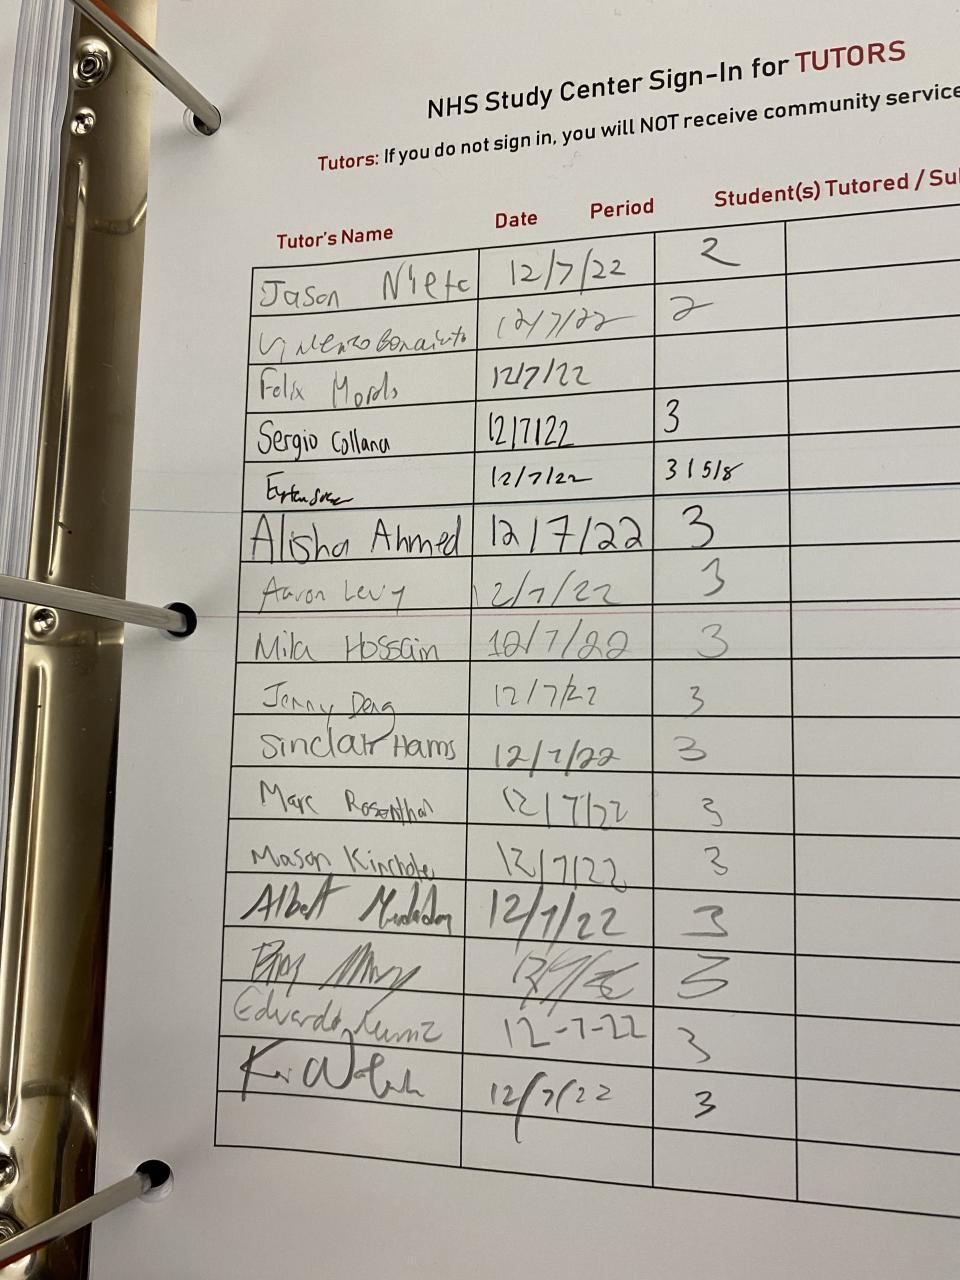 NHS Study Center Sign-In for TUTORS
Tutors: If you do not sign in, you will NOT receive community service
Tutor's Name Date Period Student(s) Tutored / Su
Jason 12/7/22 2
12/7/22 2
Felix 12/7/22
Sergio Collana 12/7/22 3
12/7/22 3 15/8
Alisha Ahmed 12/7/22 3
Aaron Levy 12/7/22 3
Mila Hossain 12/7/22 3
Jenny Deng 12/7/22 3
Sinclair Harris 12/7/22 3
Marc Rosenthal 12/7/22 3
Mason 12/7/22 3
Albert 12/7/22 3
3
Eduardo 12-7-22 3
12/7/22 3